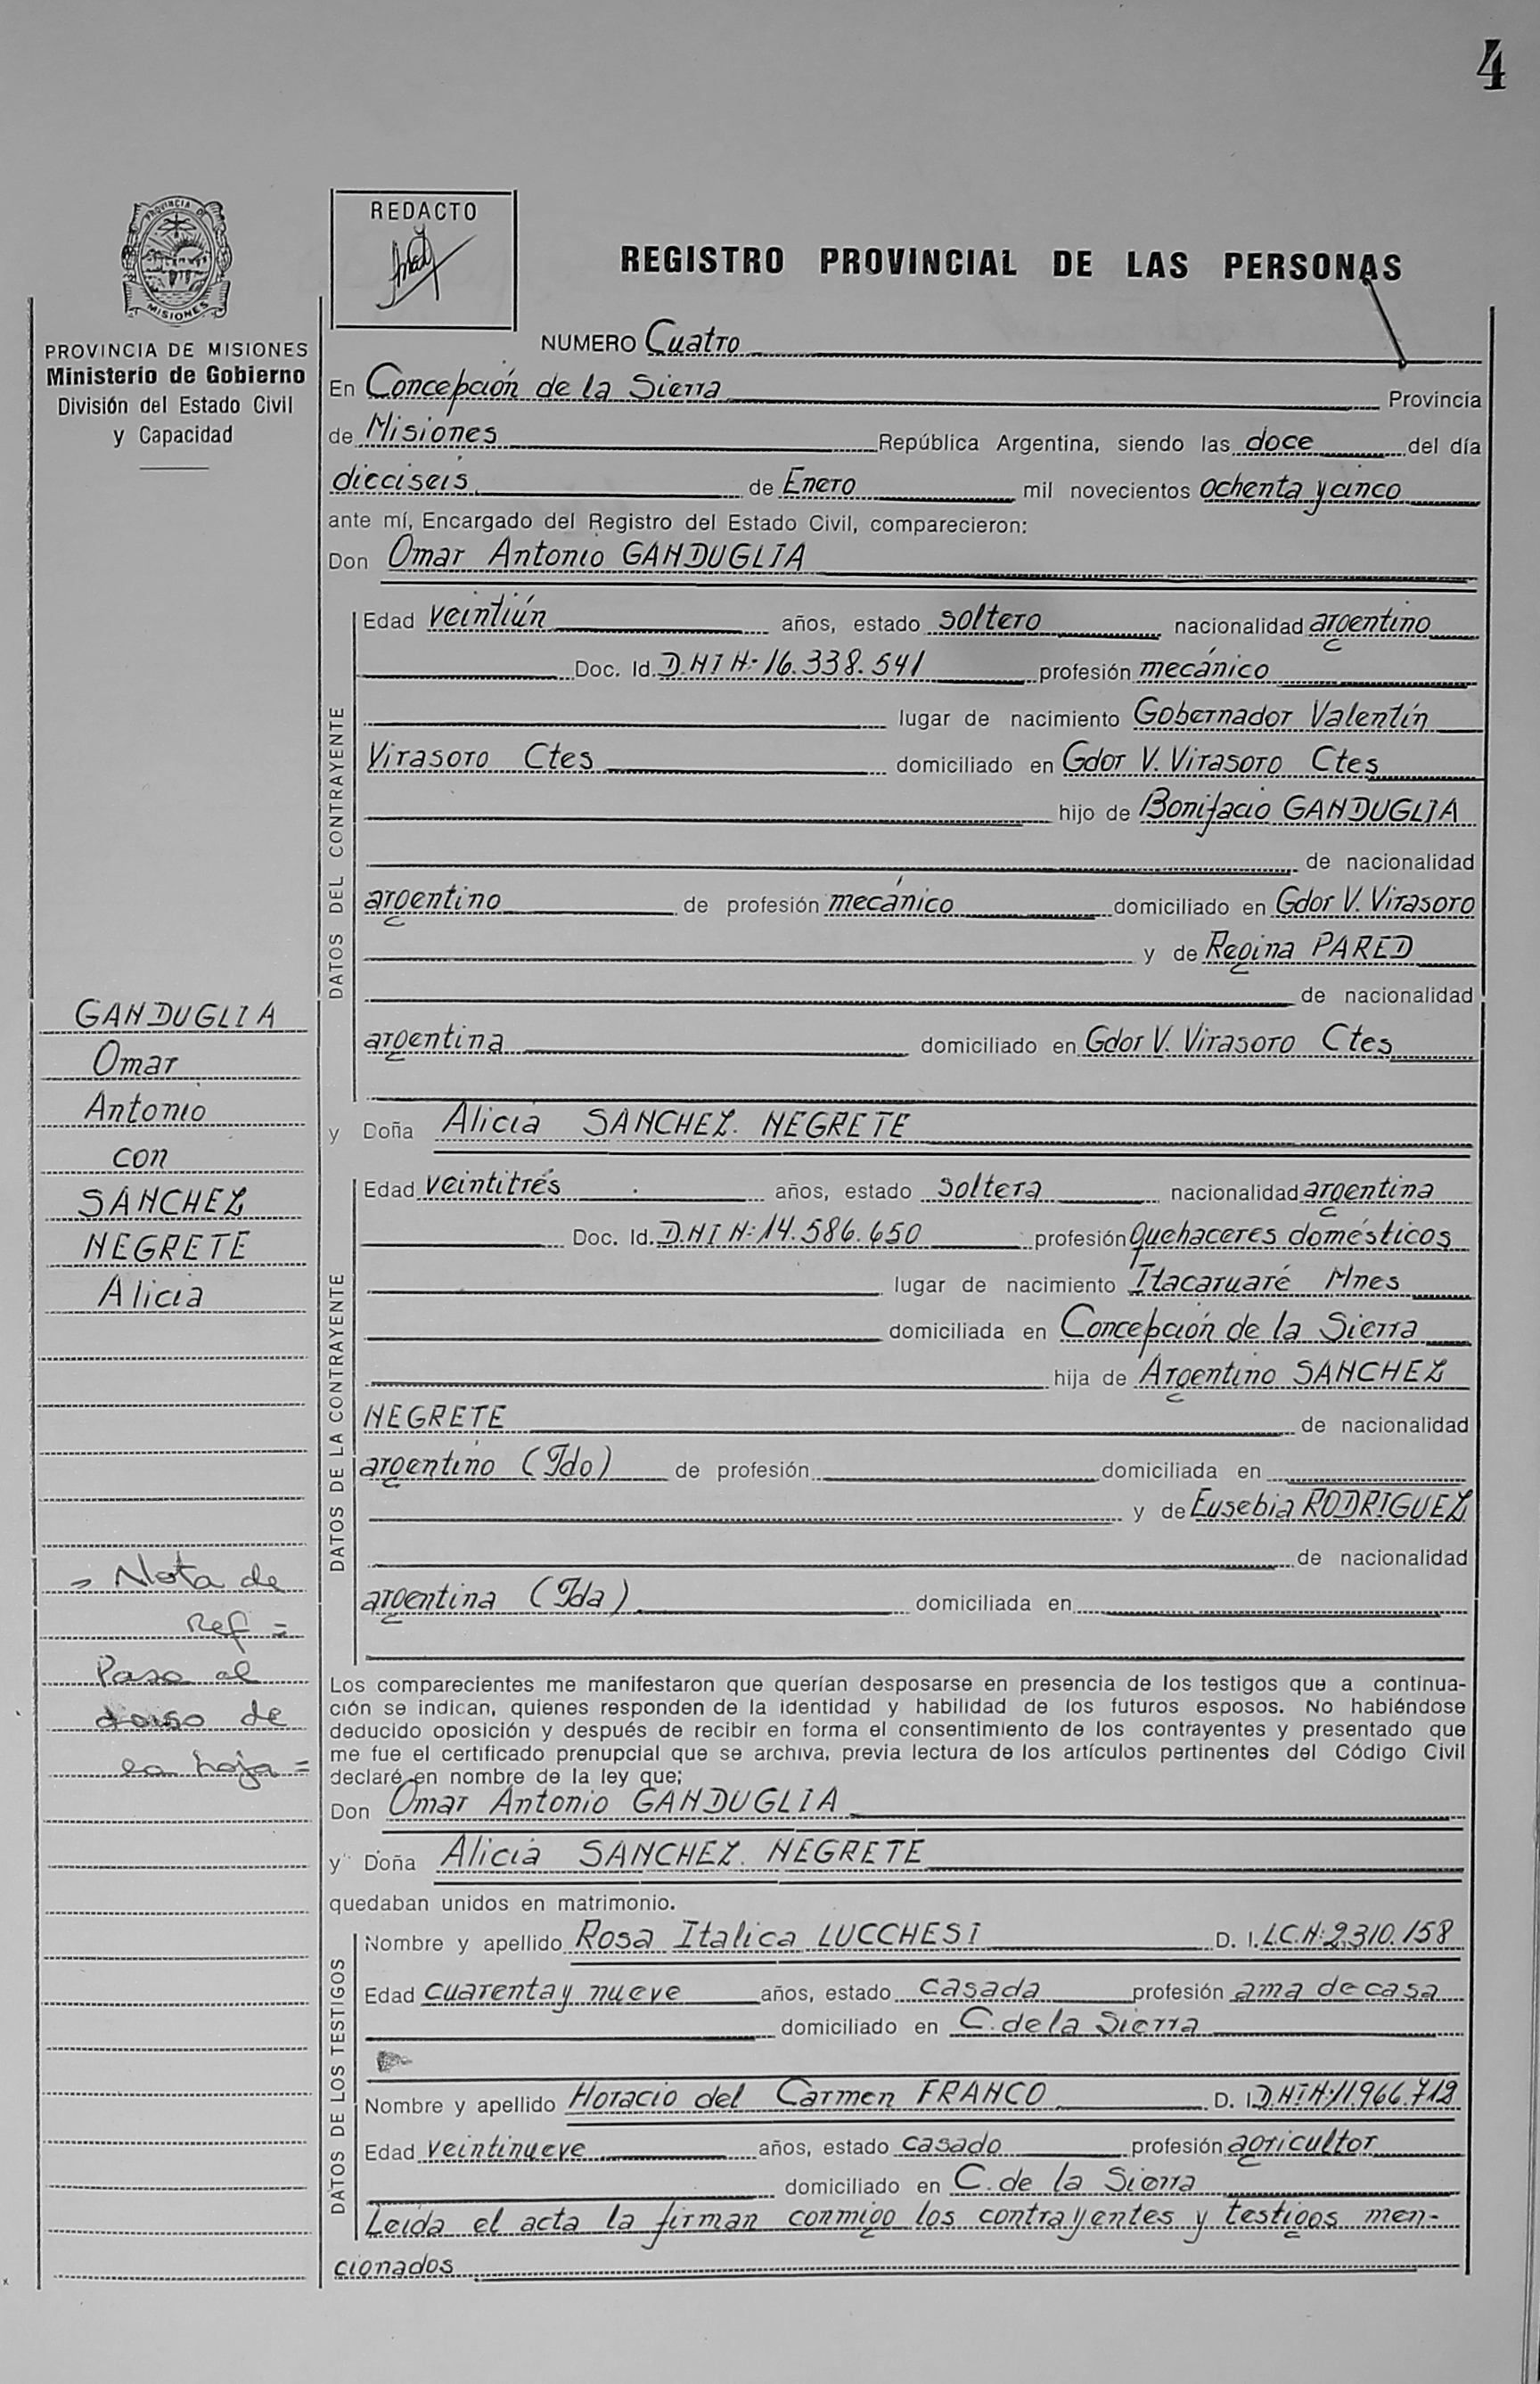 4
PROVINCIA DE
MISIONES
PROVINCIA DE MISIONES
Ministerio de Gobierno
División del Estado Civil
y Capacidad
REDACTO
REGISTRO PROVINCIAL DE LAS PERSONAS
NUMERO Cuatro
En Concepción de la Sierra Provincia
de Misiones República Argentina, siendo las doce del día
dieciseis de Enero mil novecientos ochenta y cinco
ante mí, Encargado del Registro del Estado Civil, comparecieron:
Don Omar Antonio GANDUGLIA
DATOS DEL CONTRAYENTE
Edad veintiún años, estado soltero nacionalidad argentino
Doc. Id. D.N I N: 16.338.541 profesión mecánico
lugar de nacimiento Gobernador Valentín
Virasoro Ctes domiciliado en Gdor V. Virasoro Ctes
hijo de Bonifacio GANDUGLIA
de nacionalidad
argentino de profesión mecánico domiciliado en Gdor V. Virasoro
y de Regina PARED
de nacionalidad
argentina domiciliado en Gdor V. Virasoro Ctes
y Doña Alicia SANCHEZ NEGRETE
DATOS DE LA CONTRAYENTE
Edad veintitrés años, estado soltera nacionalidad argentina
Doc. Id. D.N I N: 14.586.650 profesión quehaceres domésticos
lugar de nacimiento Itacaruaré Mnes
domiciliada en Concepción de la Sierra
hija de Argentino SANCHEZ
NEGRETE de nacionalidad
argentino (Fdo) de profesión domiciliada en
y de Eusebia RODRIGUEZ
de nacionalidad
argentina (Fda) domiciliada en
Los comparecientes me manifestaron que querían desposarse en presencia de los testigos que a continua-
ción se indican, quienes responden de la identidad y habilidad de los futuros esposos. No habiéndose
deducido oposición y después de recibir en forma el consentimiento de los contrayentes y presentado que
me fue el certificado prenupcial que se archiva, previa lectura de los artículos pertinentes del Código Civil
declaré en nombre de la ley que;
Don Omar Antonio GANDUGLIA
y Doña Alicia SANCHEZ NEGRETE
quedaban unidos en matrimonio.
DATOS DE LOS TESTIGOS
Nombre y apellido Rosa Italica LUCCHESI D. I. L.C.N: 2.310.158
Edad cuarenta y nueve años, estado casada profesión ama de casa
domiciliado en C. de la Sierra
Nombre y apellido Horacio del Carmen FRANCO D. I. D.N I N: 11.966.712
Edad veintinueve años, estado casado profesión agricultor
domiciliado en C. de la Sierra
Leída el acta la firman conmigo los contrayentes y testigos men-
cionados
GANDUGLIA
Omar
Antonio
con
SANCHEZ
NEGRETE
Alicia
= Nota de
Ref =
Pasa al
dorso de
la hoja =